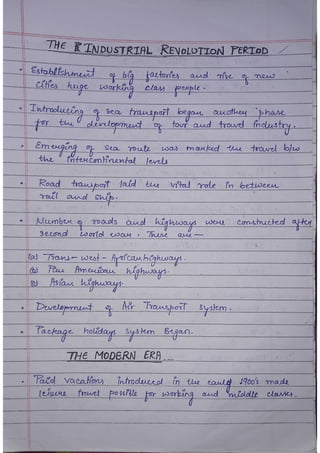 THE INDUSTRIAL REVOLUTION PERIOD
• Establishment of big factories and rise of new
cities huge working class people.
• Introducing of sea transport began another phase
for the development of tour and travel industry.
• Emerging of sea route was marked the travel b/w
the intercontinental levels
• Road transport laid the vital role in between
rail and ship.
• Number of roads and highways were constructed after
second world war. These are —
(a) Trans-west-African highways.
(b) Pan American highways.
(c) Asian highways.
• Development of Air Transport system.
• Package holidays system Began.
THE MODERN ERA...
• Paid vacations introduced in the early 1900's made
leisure travel possible for working and middle classes.